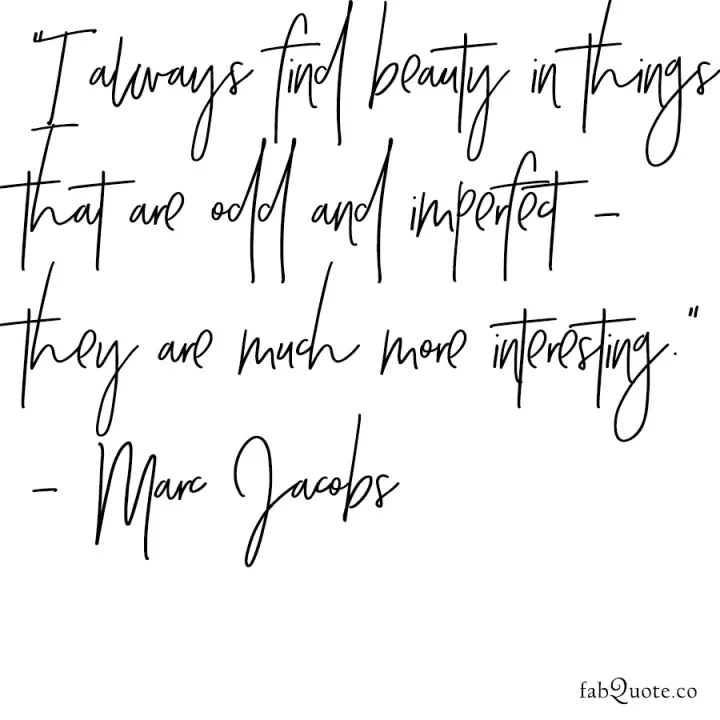 "I always find beauty in things
that are odd and imperfect -
they are much more interesting."
- Marc Jacobs
fabQuote.co